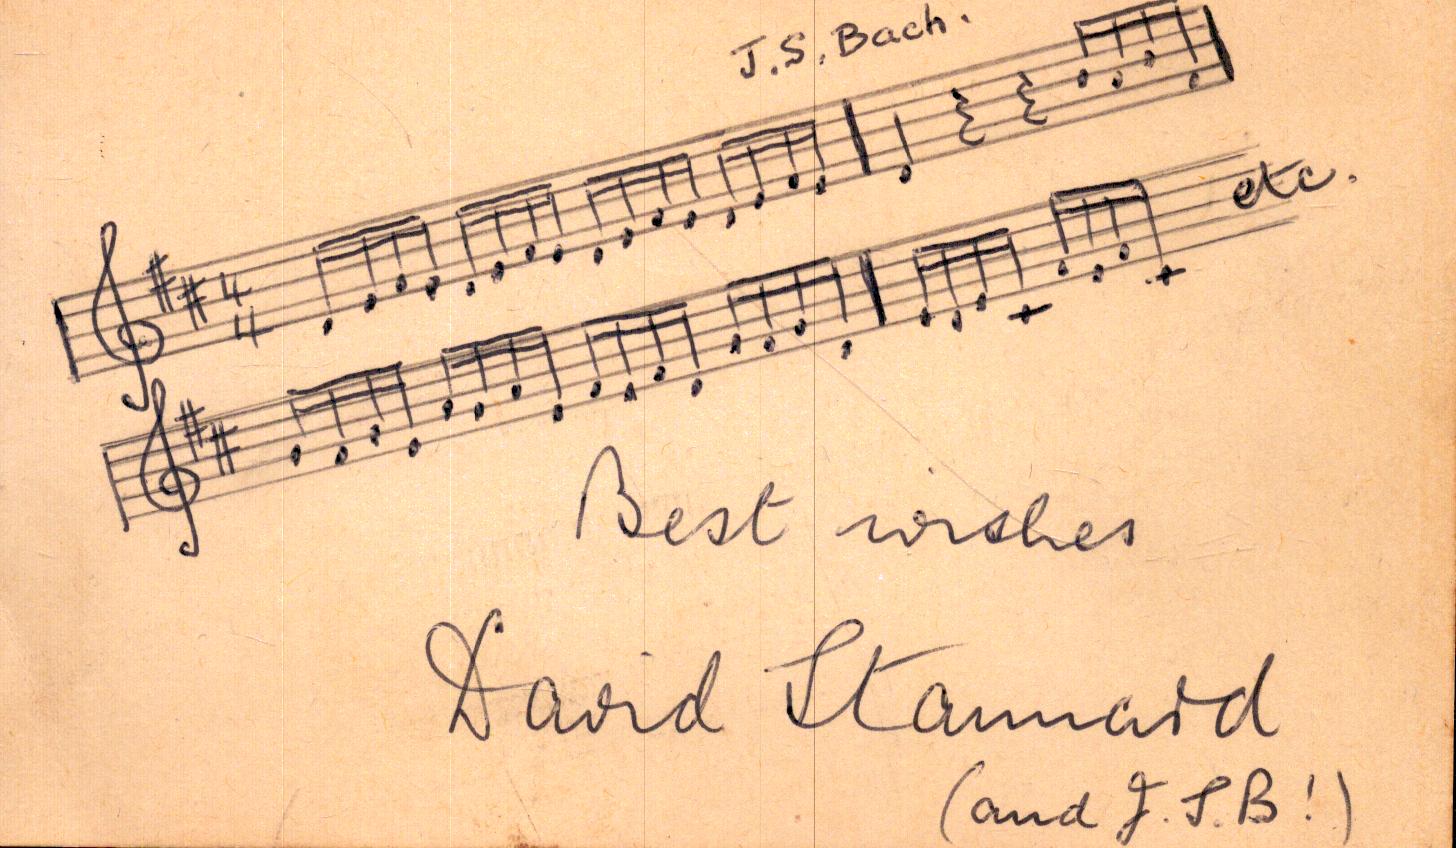 J.S. Bach.
4
4
etc.
Best wishes
David Stannard
(and J.S.B!)